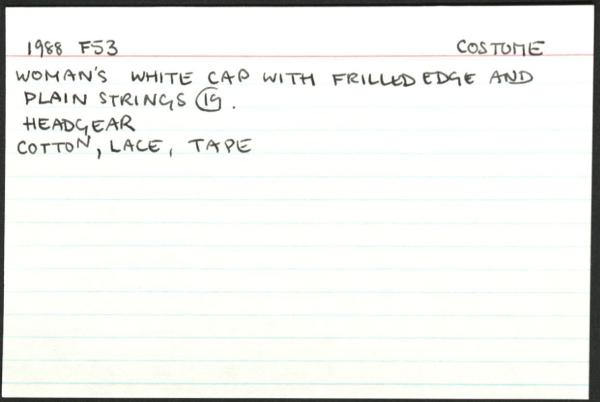 1988 F53 COSTUME
WOMAN'S WHITE CAP WITH FRILLED EDGE AND
PLAIN STRINGS 19.
HEADGEAR
COTTON, LACE, TAPE